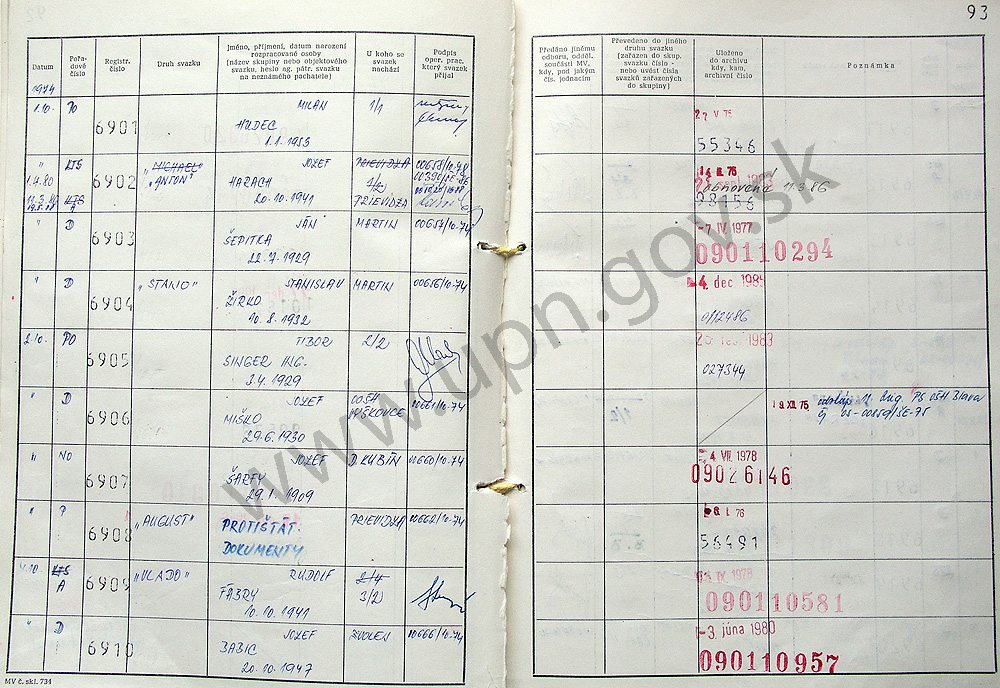 93
Datum
Pořadové číslo
Registr. číslo
Druh svazku
Jméno, příjmení, datum narození rozpracované osoby (název skupiny nebo objektového svazku, heslo ag. pátr. svazku na neznámého pachatele)
U koho se svazek nachází
Podpis oper. prac. který svazek přijal
Předáno jinému odboru, odděl. součásti MV, kdy, pod jakým čís. jednacím
Převedeno do jiného druhu svazku (zařazen do skup. svazku číslo - nebo uvést čísla svazků zařazených do skupiny)
Uloženo do archivu kdy, kam, archivní číslo
Poznámka
1974
1.10. PO 6901 MILAN 1/1
HUDEC
1.1.1955
55346
" LTS 6902 „MICHAEL" JOZEF PRIEVIDZA 00658/10-48
1.4.80 „ANTON" HARACH 1/2
A 20.10.1941 PRIEVIDZA
obnovené 11.3.86
98156
" D 6903 JÁN MARTIN 00657/10-74
ŠEPITKA
22.7.1929
-7 IV 1977
090110294
" D 6904 „STANO" STANISLAV MARTIN 00656/10-74
ŽIRKO
10.8.1932
4 dec 1985
0112486
2.10. PO 6905 TIBOR 2/2
SINGER ING.
3.4.1929
027344
" D 6906 JOZEF OOŠH 00661/10-74
MIŠKO MIŠKOVCE
29.6.1930
19. XII. 75
OS-00859/SE-75
" NO 6907 JOZEF D. KUBÍN 00660/10-74
ŠARFY
29.1.1909
4 VII. 1978
09026146
" P 6908 „AUGUST" PROTIŠTÁT. PRIEVIDZA 00662/10-74
DOKUMENTY
6. I. 76
56491
4.10. LTS 6909 „VLADO" RUDOLF 2/4
A FÁBRY 3/2
10.10.1941
1978
090110581
" D 6910 JOZEF ZVOLEN 00666/10-74
BABIC
20.10.1947
-3 júna 1980
090110957
MV č. skl. 734
www.upn.gov.sk